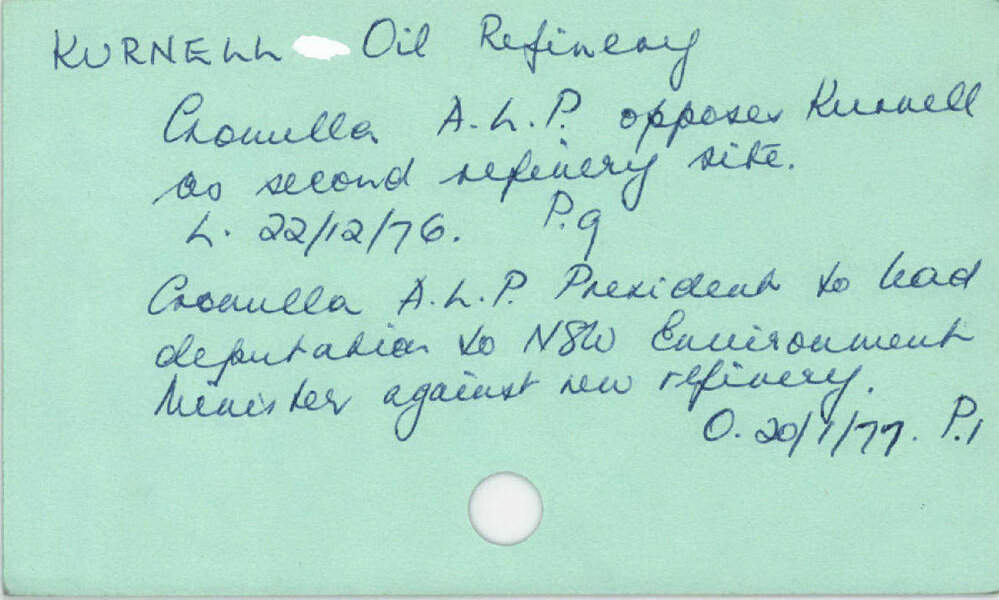 KURNELL Oil Refinery
Cronulla A.L.P. opposes Kurnell
as second refinery site.
L. 22/12/76. P.9
Cronulla A.L.P. President to lead
deputation to NSW Environment
Minister against new refinery.
O. 20/1/77. P.1